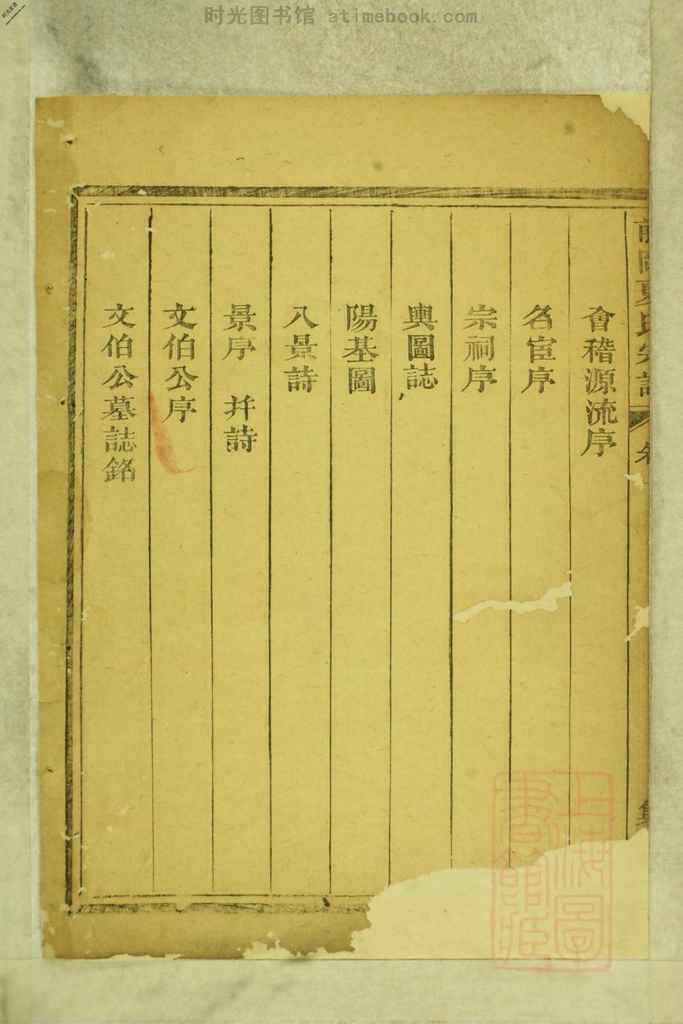 时光图书馆 atimebook.com
會稽源流序
名宦序
宗祠序
輿圖誌
陽基圖
八景詩
景序 并詩
文伯公序
文伯公墓誌銘
上海圖書館藏